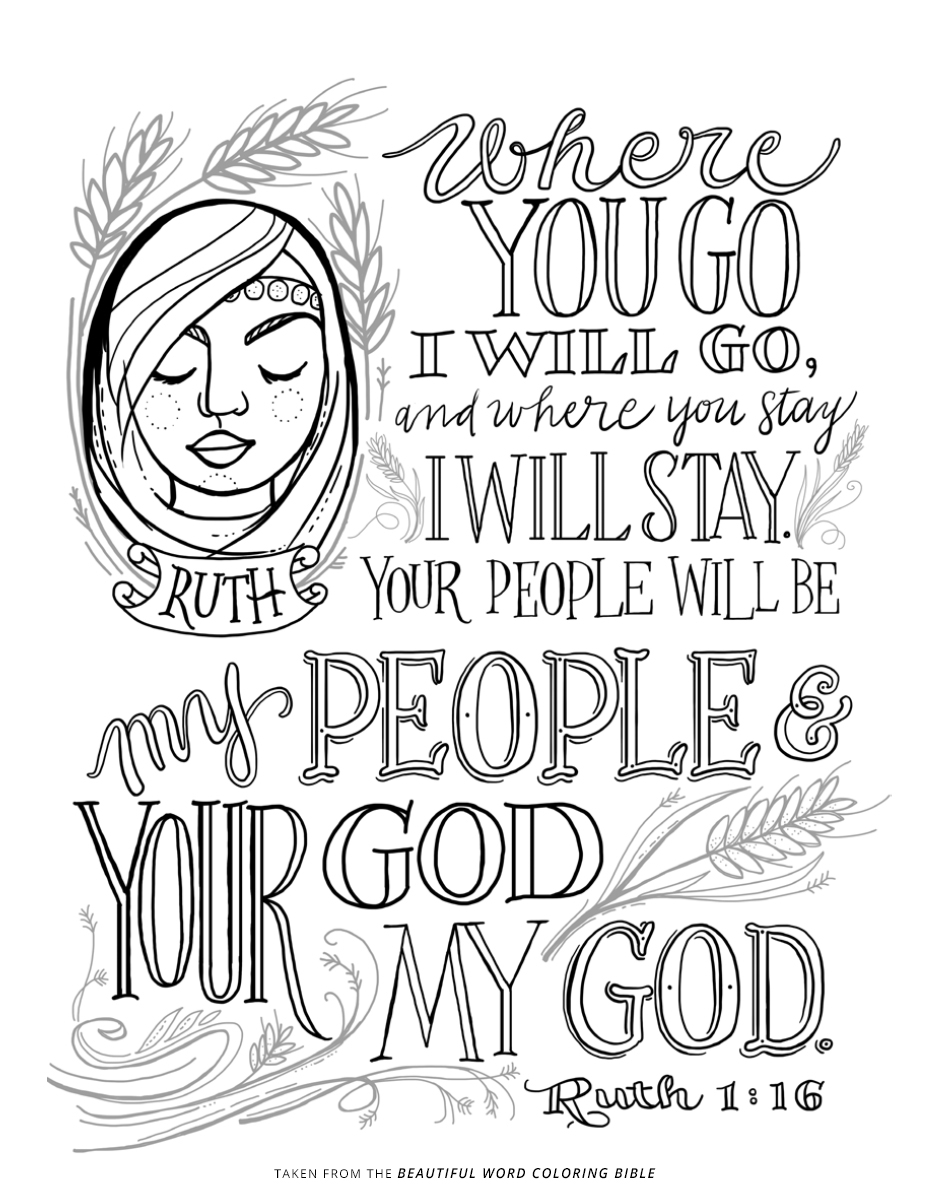 Where
YOU GO
I WILL GO,
and where you stay
I WILL STAY.
RUTH
YOUR PEOPLE WILL BE
my PEOPLE &
YOUR GOD
MY GOD.
Ruth 1:16
TAKEN FROM THE BEAUTIFUL WORD COLORING BIBLE